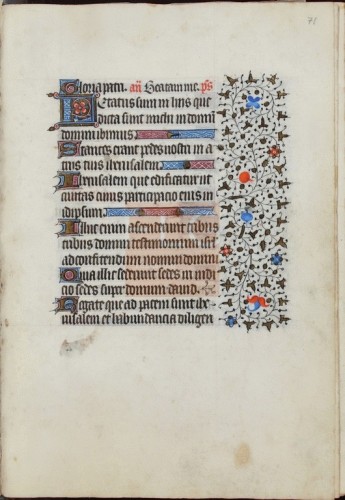 71
Gloria patri. añ Beatam me. ps
Letatus sum in hiis que
dicta sunt michi in domum
domini ibimus.
Stantes erant pedes nostri in a
triis tuis iherusalem.
Iherusalem que edificatur ut
civitas cuius participacio eius in
idipsum.
Illuc enim ascenderunt tribus
tribus domini testimonium isrl
ad confitendum nomini domini
Quia illic sederunt sedes in iudi
cio sedes super domum david.
Rogate que ad pacem sunt ihe
rusalem et habundancia diligen